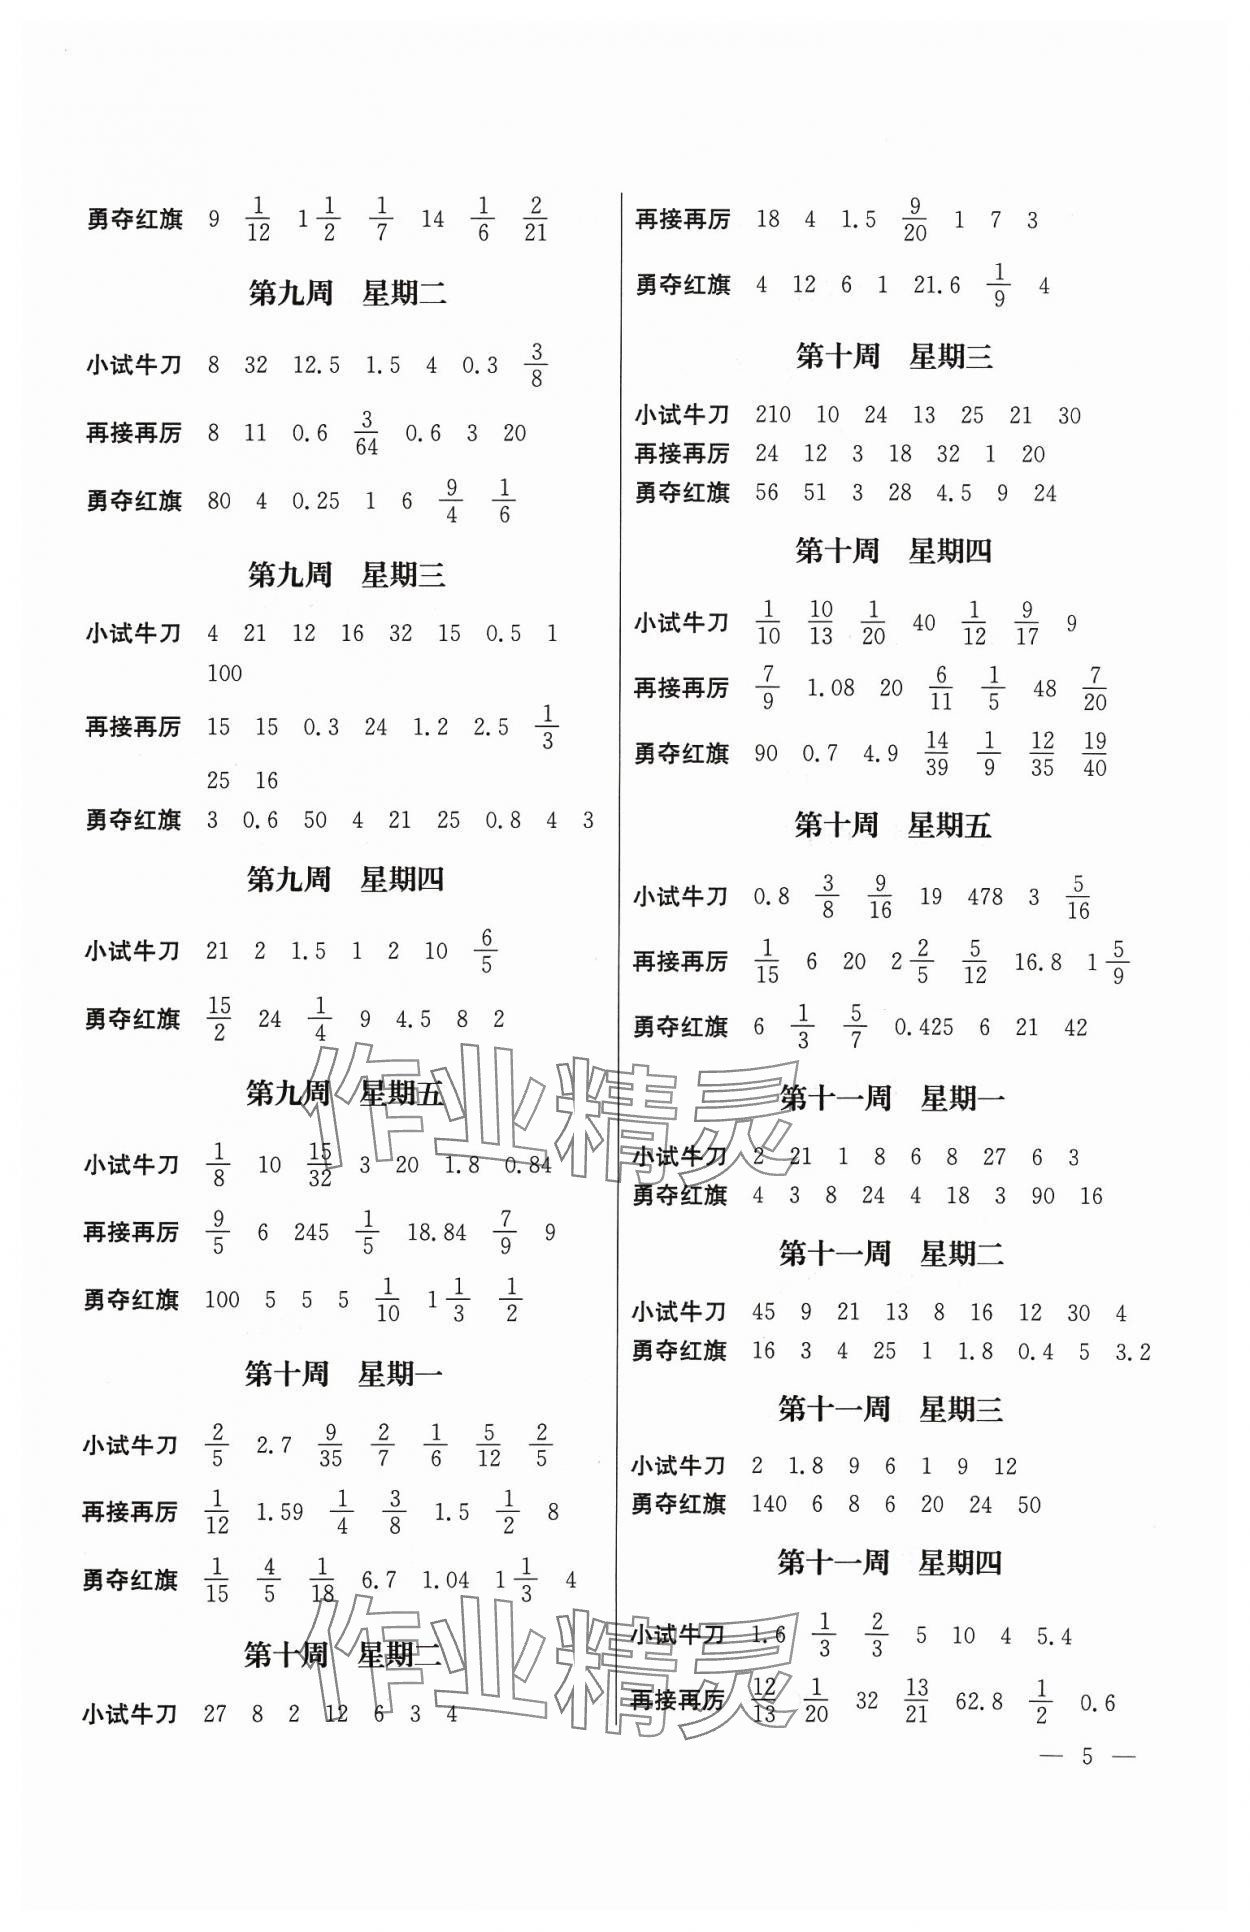 勇夺红旗 9 1/12 1 1/2 1/7 14 1/6 2/21
第九周 星期二
小试牛刀 8 32 12.5 1.5 4 0.3 3/8
再接再厉 8 11 0.6 3/64 0.6 3 20
勇夺红旗 80 4 0.25 1 6 9/4 1/6
第九周 星期三
小试牛刀 4 21 12 16 32 15 0.5 1
100
再接再厉 15 15 0.3 24 1.2 2.5 1/3
25 16
勇夺红旗 3 0.6 50 4 21 25 0.8 4 3
第九周 星期四
小试牛刀 21 2 1.5 1 2 10 6/5
勇夺红旗 15/2 24 1/4 9 4.5 8 2
第九周 星期五
小试牛刀 1/8 10 15/32 3 20 1.8 0.84
再接再厉 9/5 6 245 1/5 18.84 7/9 9
勇夺红旗 100 5 5 5 1/10 1 1/3 1/2
第十周 星期一
小试牛刀 2/5 2.7 9/35 2/7 1/6 5/12 2/5
再接再厉 1/12 1.59 1/4 3/8 1.5 1/2 8
勇夺红旗 1/15 4/5 1/18 6.7 1.04 1 1/3 4
第十周 星期二
小试牛刀 27 8 2 12 6 3 4
再接再厉 18 4 1.5 9/20 1 7 3
勇夺红旗 4 12 6 1 21.6 1/9 4
第十周 星期三
小试牛刀 210 10 24 13 25 21 30
再接再厉 24 12 3 18 32 1 20
勇夺红旗 56 51 3 28 4.5 9 24
第十周 星期四
小试牛刀 1/10 10/13 1/20 40 1/12 9/17 9
再接再厉 7/9 1.08 20 6/11 1/5 48 7/20
勇夺红旗 90 0.7 4.9 14/39 1/9 12/35 19/40
第十周 星期五
小试牛刀 0.8 3/8 9/16 19 478 3 5/16
再接再厉 1/15 6 20 2 2/5 5/12 16.8 1 5/9
勇夺红旗 6 1/3 5/7 0.425 6 21 42
第十一周 星期一
小试牛刀 2 21 1 8 6 8 27 6 3
勇夺红旗 4 3 8 24 4 18 3 90 16
第十一周 星期二
小试牛刀 45 9 21 13 8 16 12 30 4
勇夺红旗 16 3 4 25 1 1.8 0.4 5 3.2
第十一周 星期三
小试牛刀 2 1.8 9 6 1 9 12
勇夺红旗 140 6 8 6 20 24 50
第十一周 星期四
小试牛刀 1.6 1/3 2/3 5 10 4 5.4
再接再厉 12/13 1/20 32 13/21 62.8 1/2 0.6
— 5 —
作业精灵
作业精灵